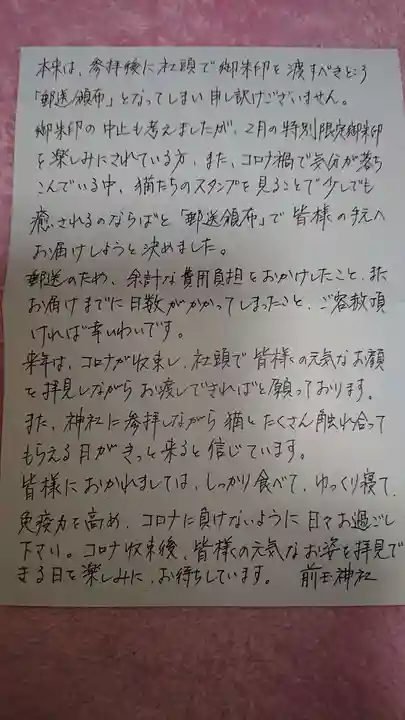 本来は、参拝後に社頭で御朱印を渡すべきところ
「郵送頒布」となってしまい申し訳けございません。
御朱印の中止も考えましたが、2月の特別限定御朱印
を楽しみにされている方、また、コロナ禍で気分が落ち
こんでいる中、猫たちのスタンプを見ることで少しでも
癒されるのならばと「郵送頒布」で皆様の手元へ
お届けしようと決めました。
郵送のため、余計な費用負担をおかけしたこと、また
お届けまでに日数がかかってしまったこと、ご容赦頂
ければ幸いわいです。
来年は、コロナが収束し、社頭で皆様の元気なお顔
を拝見しながらお渡しできればと願っております。
また、神社に参拝しながら猫とたくさん触れ合って
もらえる日がきっと来ると信じています。
皆様におかれましては、しっかり食べて、ゆっくり寝て、
免疫力を高め、コロナに負けないように日々お過ごし
下さい。コロナ収束後、皆様の元気なお姿を拝見で
きる日を楽しみに、お待ちしています。 前玉神社